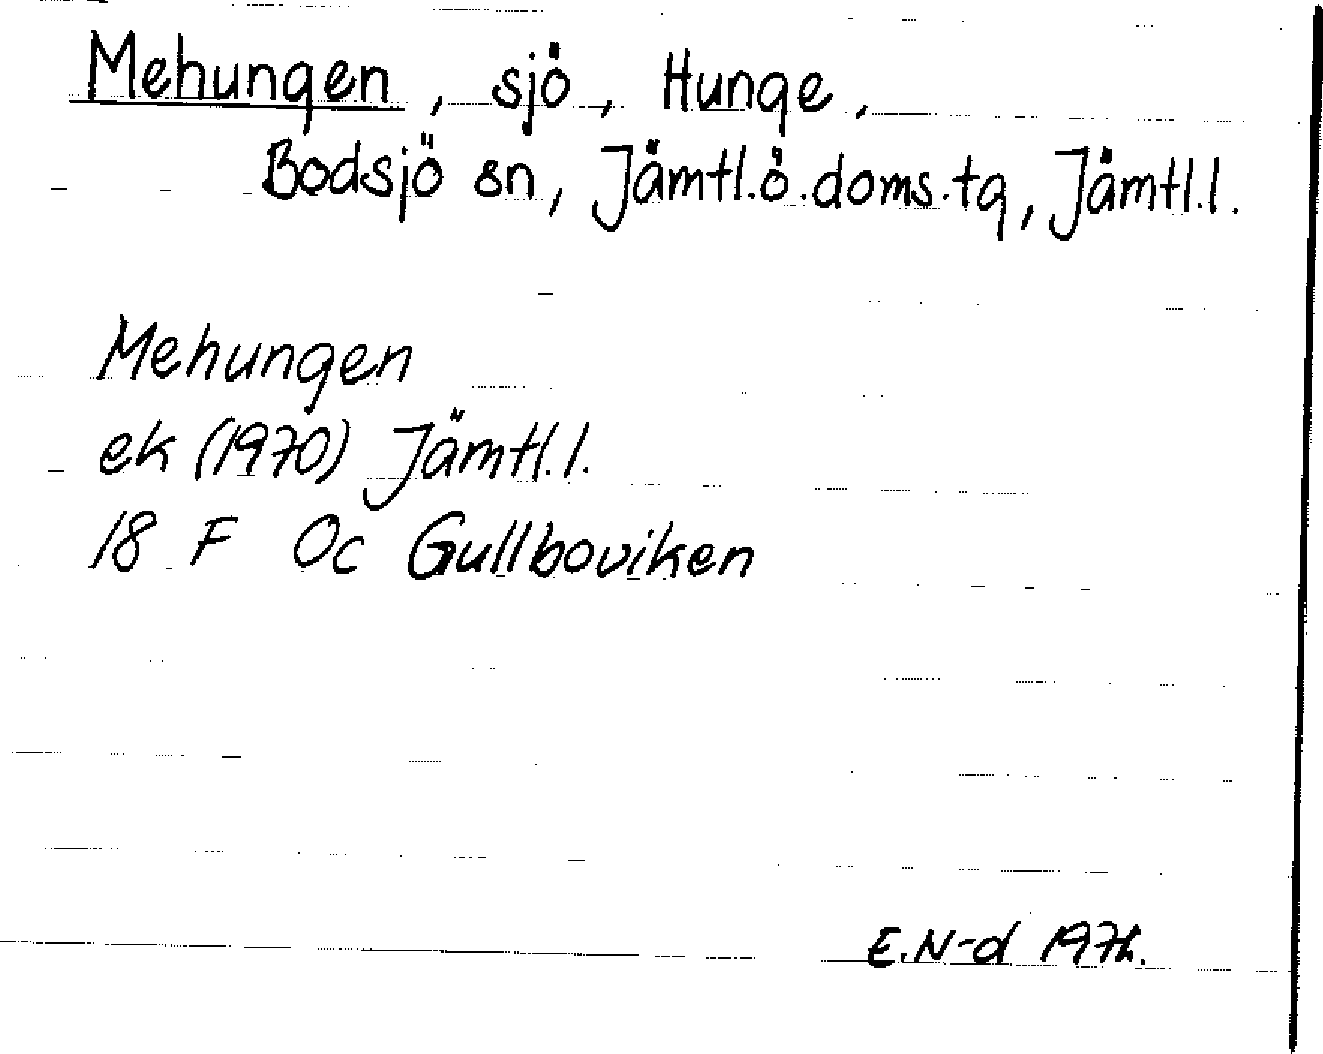 Mehungen, sjö, Hunge,
Bodsjö sn, Jämtl.ö.doms.tg, Jämtl.l.
Mehungen
ek (1970) Jämtl.l.
18 F Oc Gullboviken
E.N-d